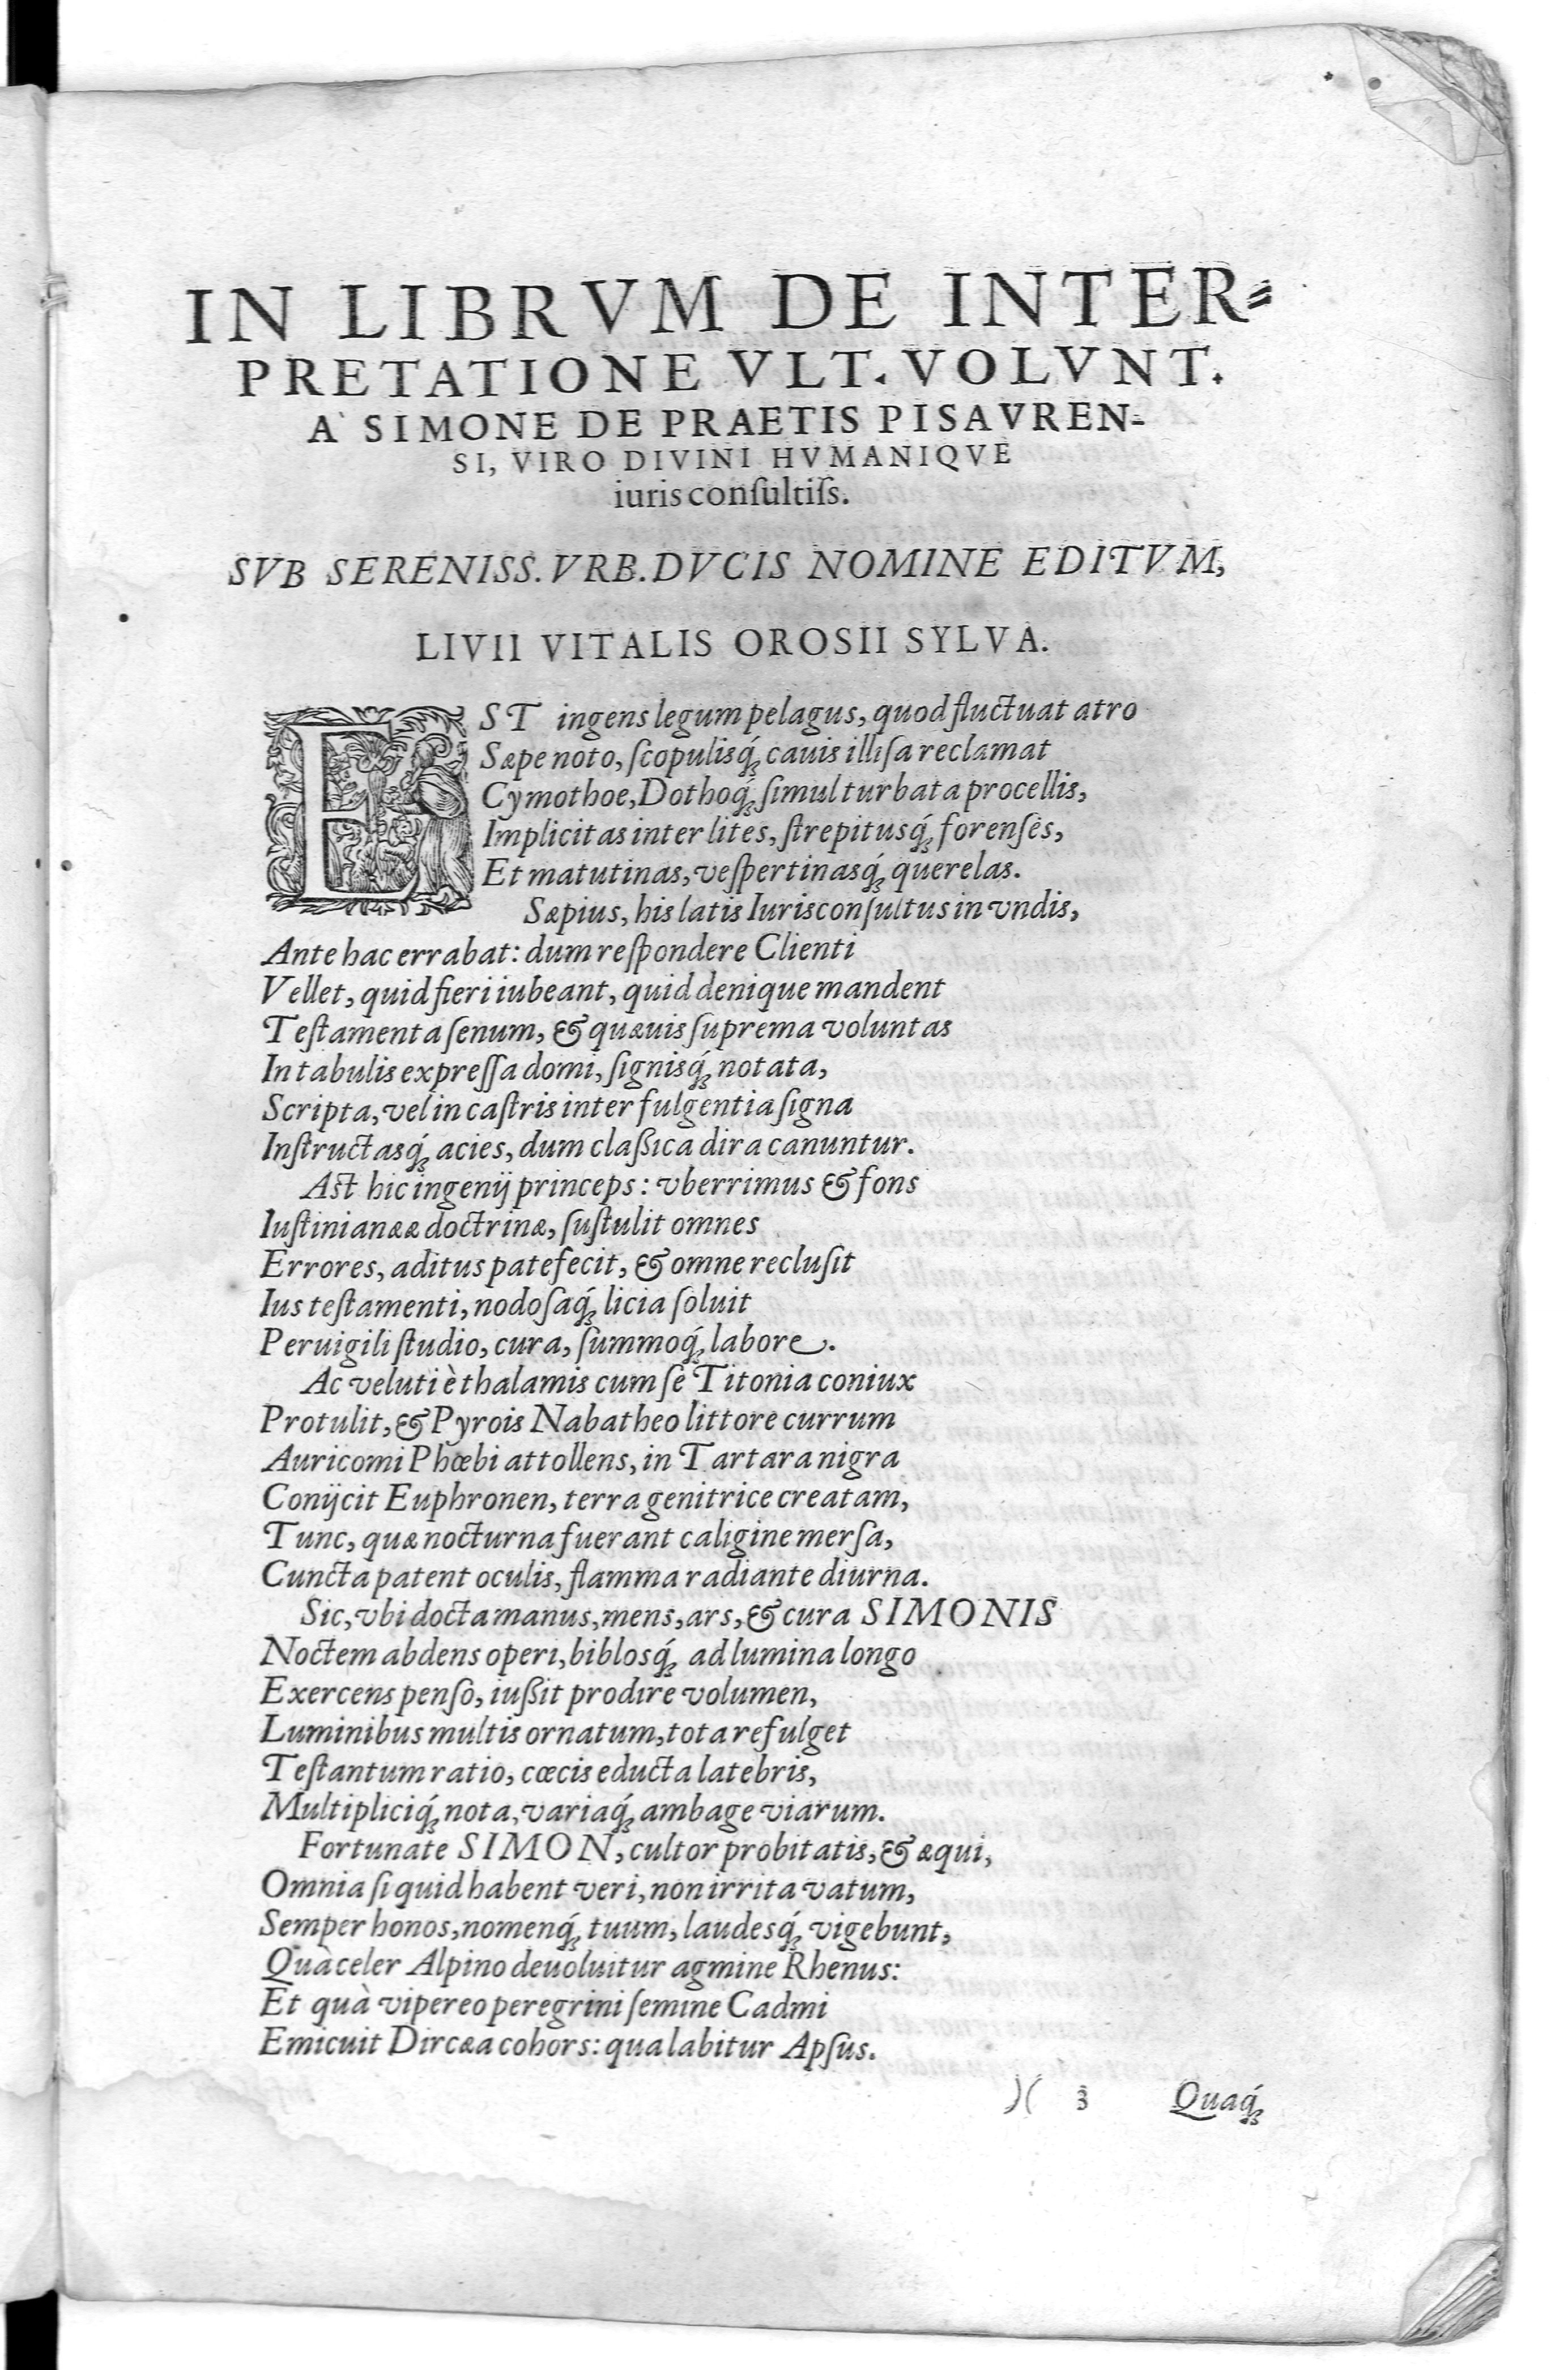 IN LIBRVM DE INTER=
PRETATIONE VLT. VOLVNT.
A` SIMONE DE PRAETIS PISAVREN=
SI, VIRO DIVINI HVMANIQVE
iuris conſultiſs.
SVB SERENISS. VRB. DVCIS NOMINE EDITVM,
LIVII VITALIS OROSII SYLVA.
EST ingens legum pelagus, quod fluctuat atro
Sæpe noto, ſcopulisq́; cauis illiſa reclamat
Cymothoe, Dothoq́; ſimul turbata procellis,
Implicitas inter lites, ſtrepitusq́; forenſes,
Et matutinas, veſpertinasq́; querelas.
Sæpius, his latis Iurisconſultus in vndis,
Ante hac errabat: dum reſpondere Clienti
Vellet, quid fieri iubeant, quid denique mandent
Teſtamenta ſenum, & quæuis ſuprema voluntas
In tabulis expreſſa domi, ſignisq́; notata,
Scripta, vel in caſtris inter fulgentia ſigna
Inſtructasq́; acies, dum claßica dira canuntur.
Ast hic ingenij princeps: vberrimus & fons
Iuſtinianææ doctrinæ, ſuſtulit omnes
Errores, aditus patefecit, & omne recluſit
Ius teſtamenti, nodoſaq́; licia ſoluit
Peruigili ſtudio, cura, ſummoq́; labore.
Ac veluti è thalamis cum ſe Titonia coniux
Protulit, & Pyrois Nabatheo littore currum
Auricomi Phœbi attollens, in Tartara nigra
Conijcit Euphronen, terra genitrice creatam,
Tunc, quæ nocturna fuerant caligine merſa,
Cuncta patent oculis, flamma radiante diurna.
Sic, vbi docta manus, mens, ars, & cura SIMONIS
Noctem abdens operi, biblosq́; ad lumina longo
Exercens penſo, iußit prodire volumen,
Luminibus multis ornatum, tota refulget
Teſtantum ratio, cœcis educta latebris,
Multipliciq́; nota, variaq́; ambage viarum.
Fortunate SIMON, cultor probitatis, & æqui,
Omnia ſi quid habent veri, non irrita vatum,
Semper honos, nomenq́; tuum, laudesq́; vigebunt,
Quà celer Alpino deuoluitur agmine Rhenus:
Et quà vipereo peregrini ſemine Cadmi
Emicuit Dircæa cohors: qua labitur Apſus.
)( 3 Quaq́;